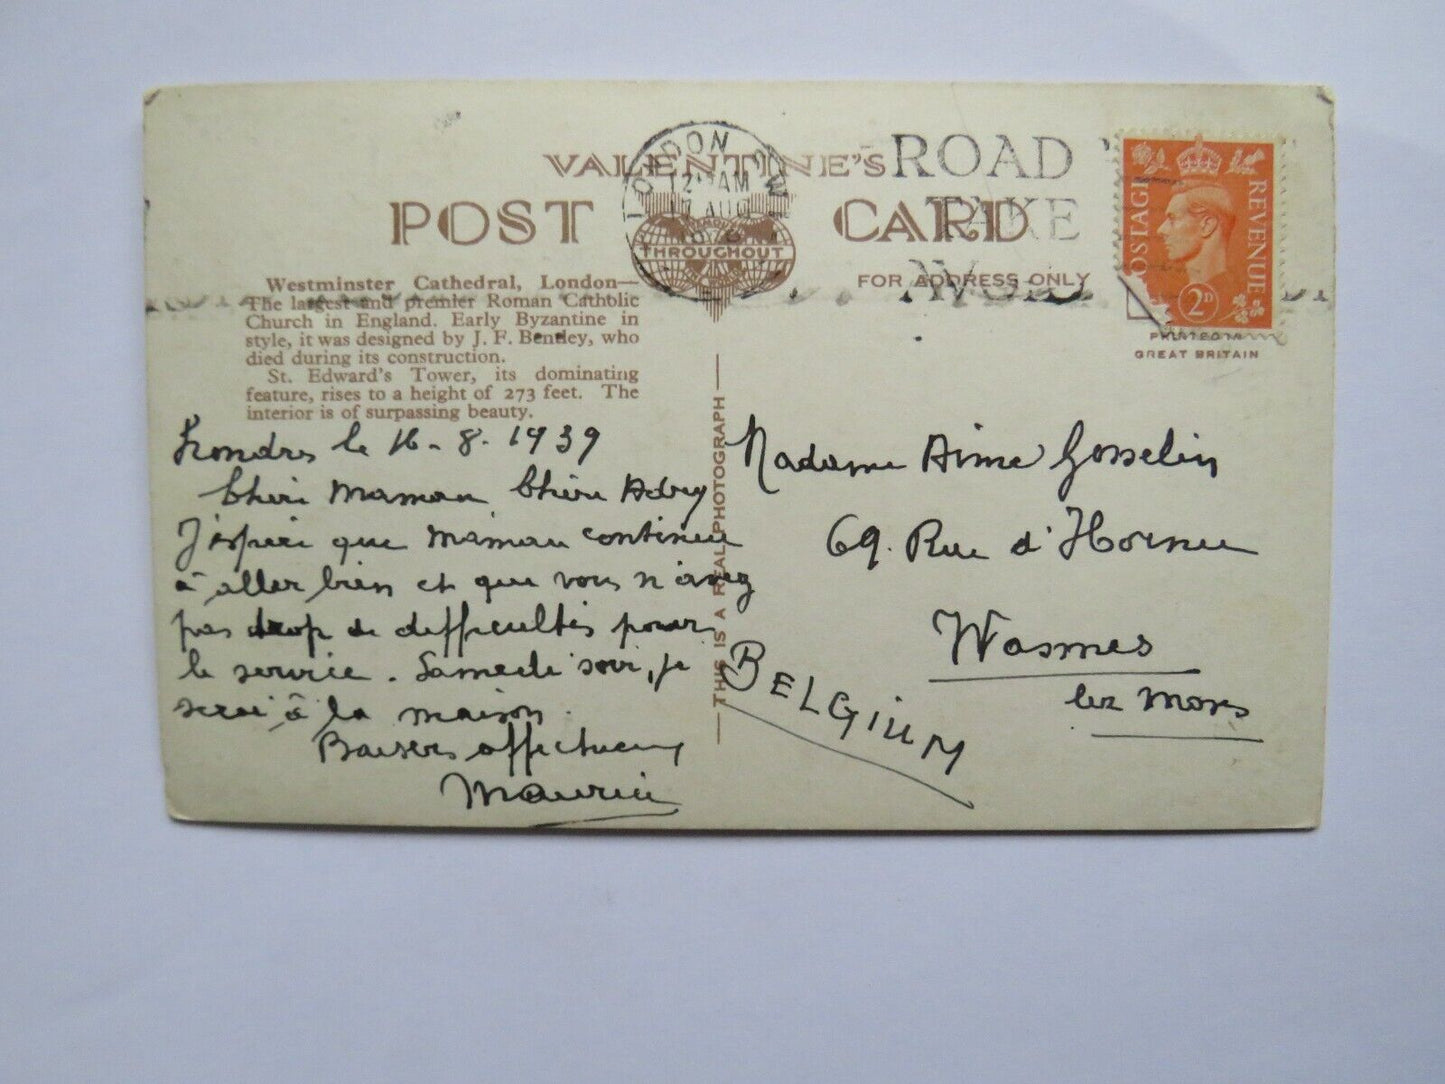 VALENTINE'S
POST CARD
THROUGHOUT
FOR ADDRESS ONLY
LONDON S.W.1
12 AM
17 AUG
ROAD
TAKE
POSTAGE
REVENUE
2D
PRINTED IN
GREAT BRITAIN
Westminster Cathedral, London—
The largest and premier Roman Catholic
Church in England. Early Byzantine in
style, it was designed by J. F. Bentley, who
died during its construction.
St. Edward's Tower, its dominating
feature, rises to a height of 273 feet. The
interior is of surpassing beauty.
THIS IS A REAL PHOTOGRAPH
Londres le 16-8-1939
Chère Maman Chère
J'espère que maman continue
à aller bien et que vous n'avez
pas trop de difficultés pour
le service. Samedi soir, je
serai à la maison.
Baisers affectueux
Maurice
Madame Aimé Gosselin
69. Rue d'Hornu
Wasmes
lez Mons
BELGIUM